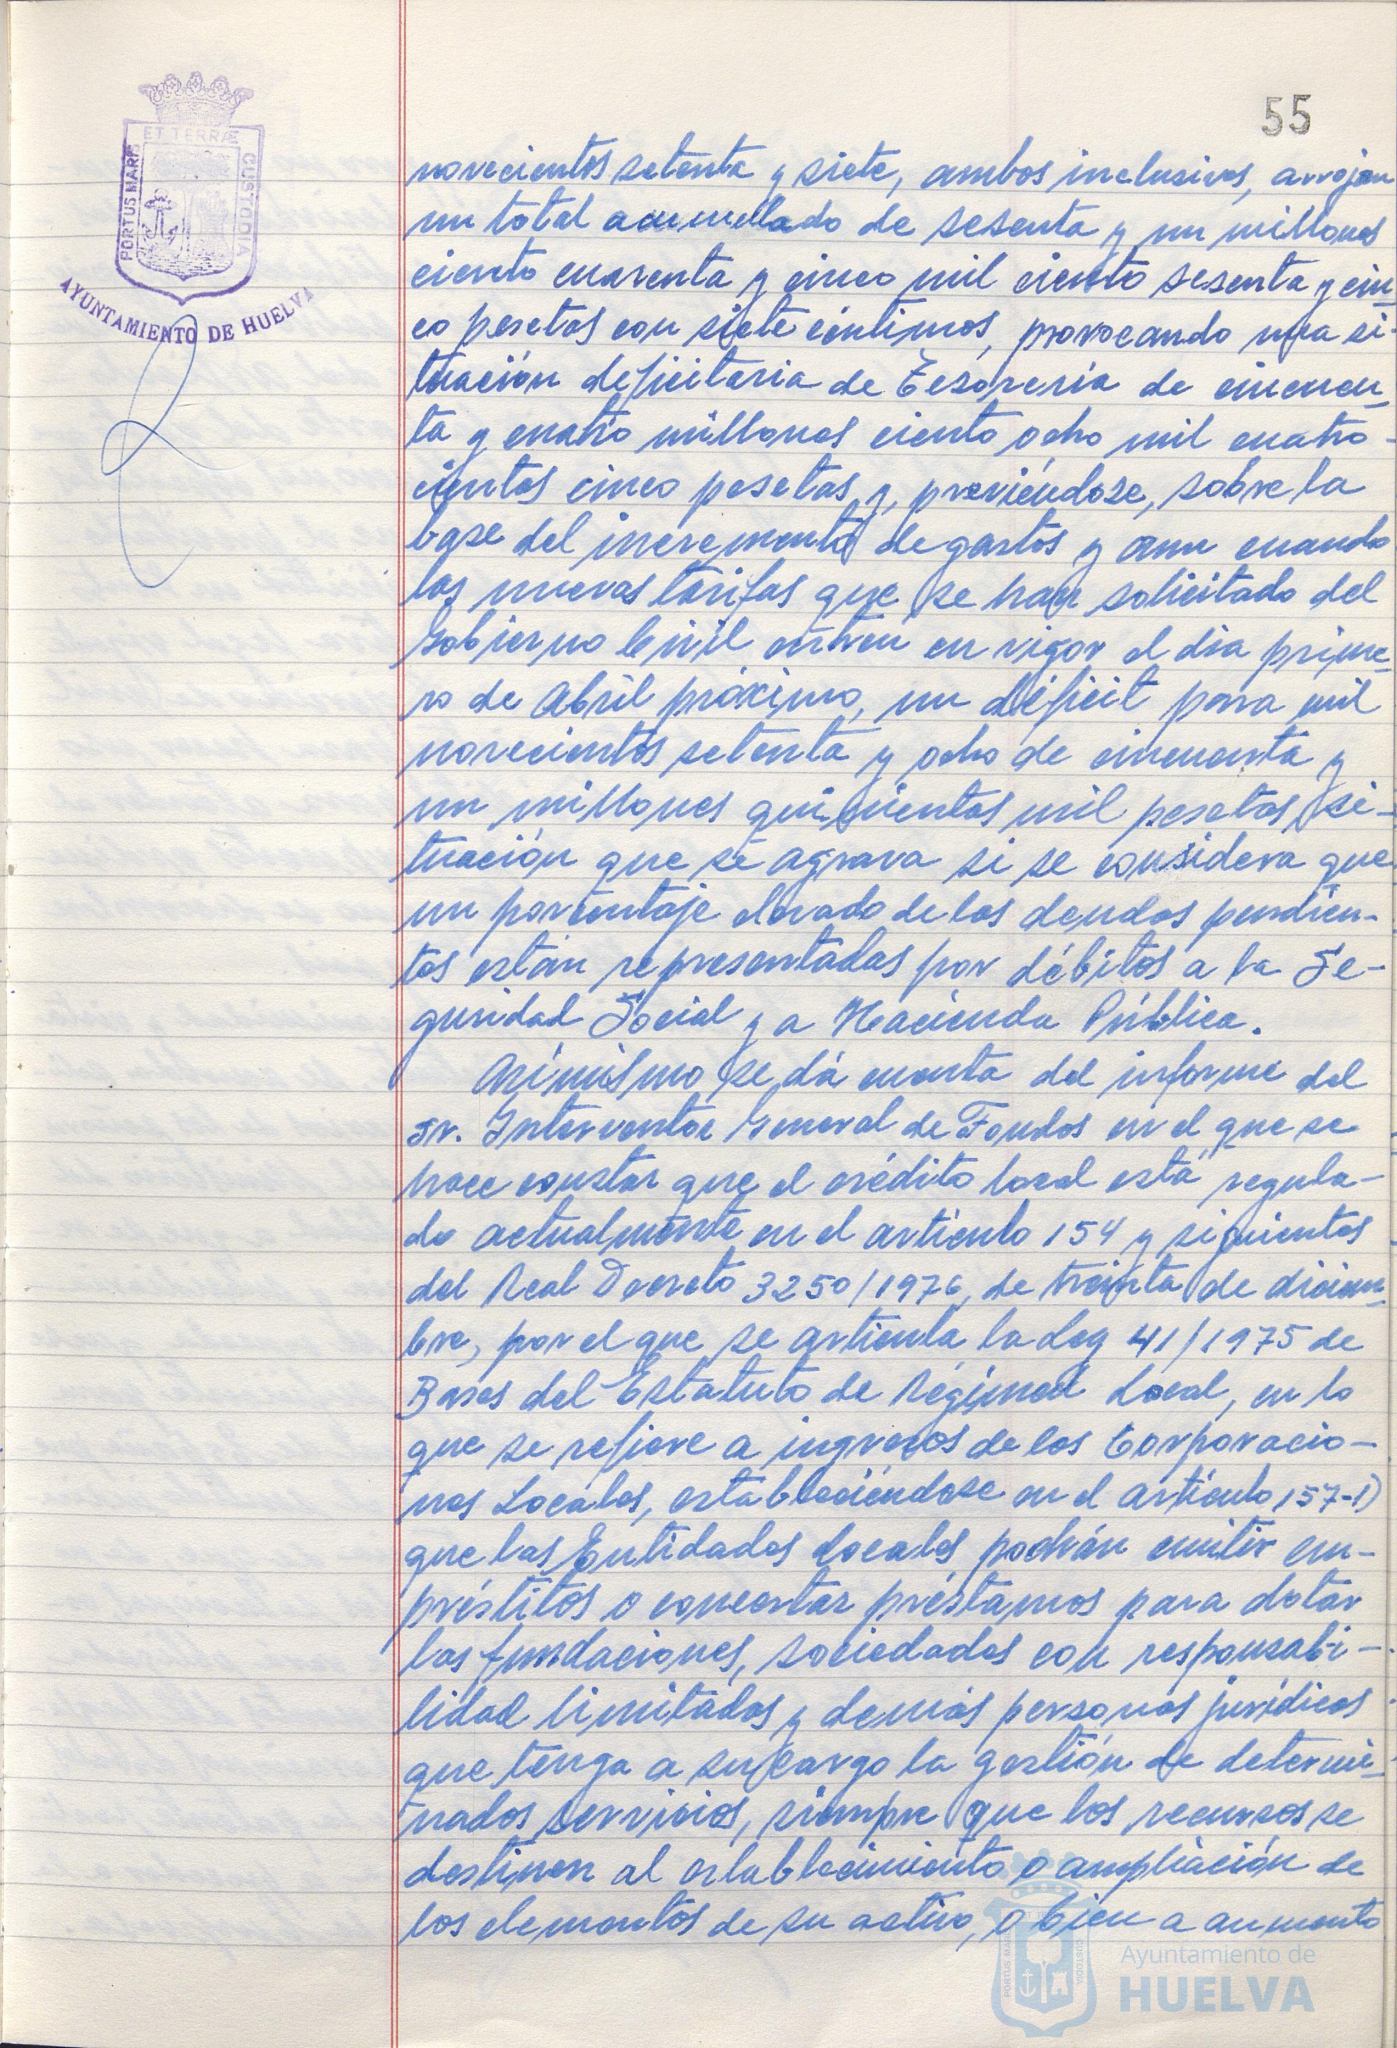 55
ET TERRÆ
PORTUS MARIS
CUSTODIA
AYUNTAMIENTO DE HUELVA
novecientos setenta y siete, ambos inclusives, arrojan
un total acumulado de sesenta y un millones
ciento cuarenta y cinco mil ciento sesenta y cin-
co pesetas con siete céntimos, provocando una si-
tuación deficitaria de Tesorería de cincuen-
ta y cuatro millones ciento ocho mil cuatro-
cientas cinco pesetas y, previéndose, sobre la
base del incremento de gastos y aun cuando
las nuevas tarifas que se han solicitado del
Gobierno Civil entren en vigor el dia prime-
ro de Abril próximo, un déficit para mil
novecientos setenta y ocho de cincuenta y
un millones quinientas mil pesetas, si-
tuación que se agrava si se considera que
un porcentaje elevado de las deudas pendien-
tes están representadas por débitos a la Se-
guridad Social y a Hacienda Pública.
Asimismo se dá cuenta del informe del
sr. Interventor General de Fondos en el que se
hace constar que el crédito local está regula-
do actualmente en el artículo 154 y siguientes
del Real Decreto 3250/1976, de treinta de diciem-
bre, por el que se articula la Ley 41/1975 de
Bases del Estatuto de Régimen Local, en lo
que se refiere a ingresos de las Corporacio-
nes Locales, estableciéndose en el artículo 157-1)
que las Entidades Locales podrán emitir em-
préstitos o concertar préstamos para dotar
las fundaciones, sociedades con responsabi-
lidad limitadas y demás personas jurídicas
que tenga a su cargo la gestión de determi-
nados servicios, siempre que los recursos se
destinen al establecimiento o ampliación de
los elementos de su activo, o bien a aumento
Ayuntamiento de
HUELVA